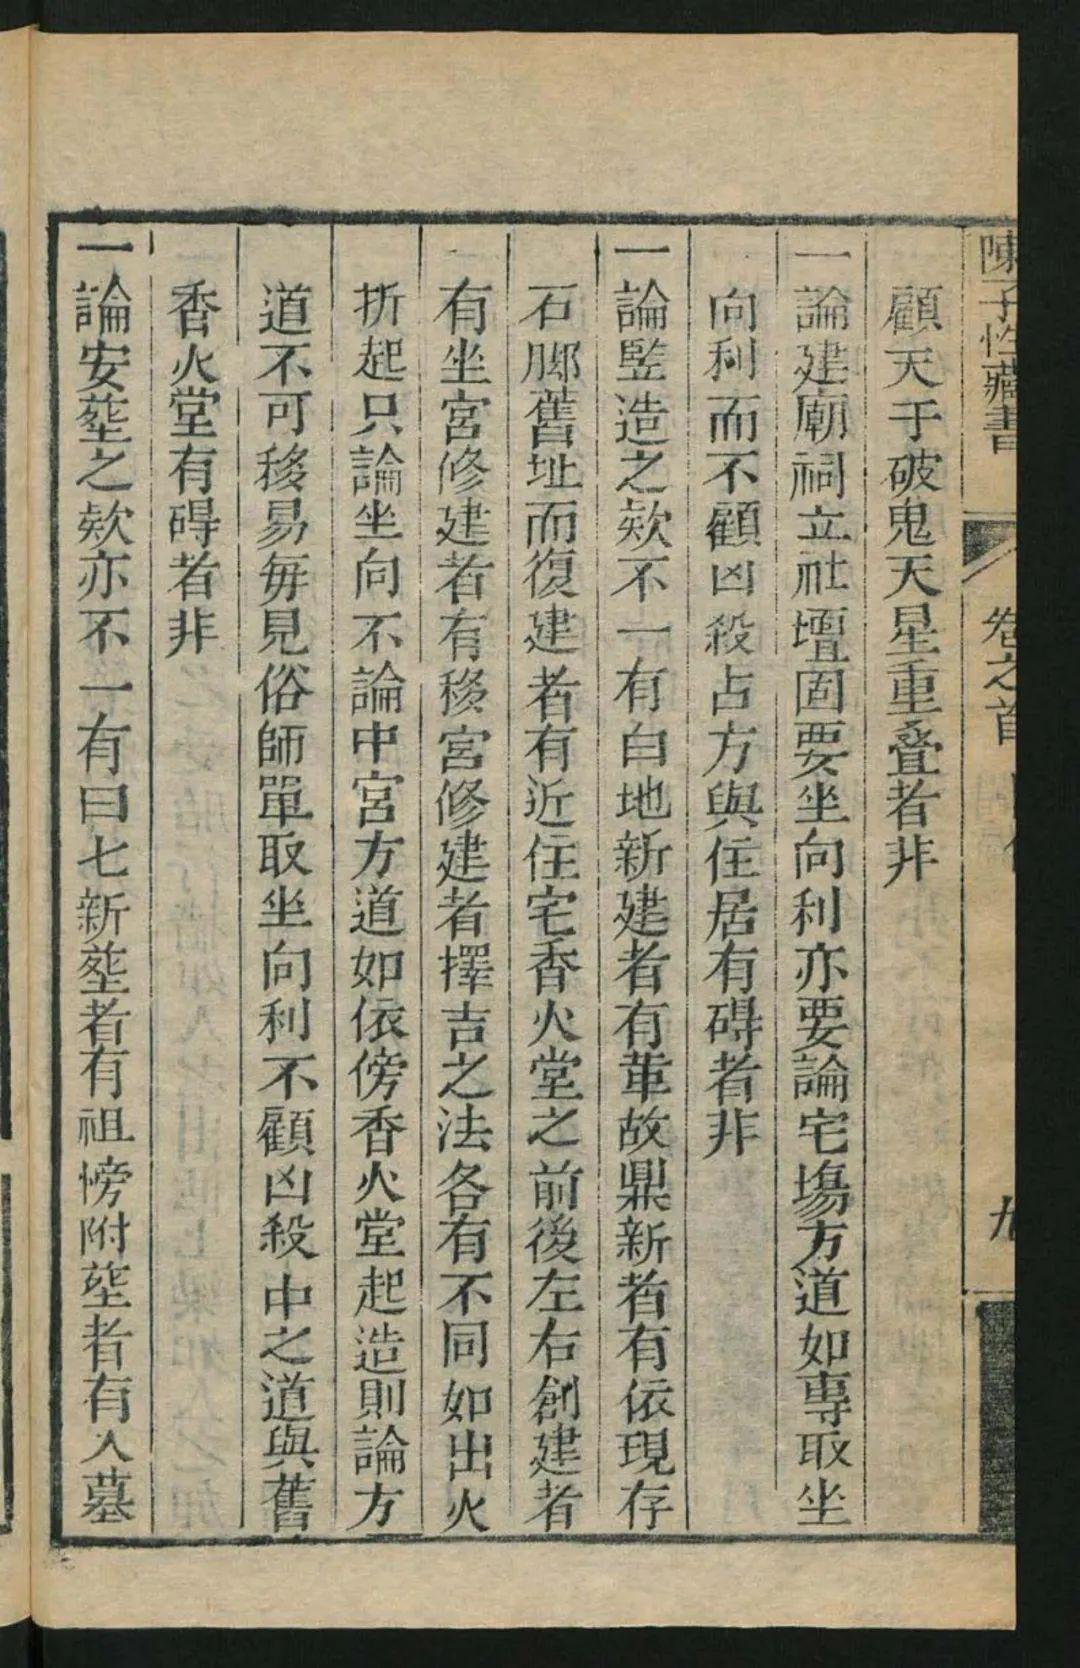 陳子性藏書
卷之首
九
顧天于破鬼天星重叠者非
一論建廟祠立社壇固要坐向利亦要論宅塲方道如專取坐
向利而不顧凶殺占方與住居有碍者非
一論監造之欵不一有白地新建者有革故鼎新者有依現存
石脚舊址而復建者有近住宅香火堂之前後左右創建者
有坐宮修建者有移宮修建者擇吉之法各有不同如出火
折起只論坐向不論中宮方道如依傍香火堂起造則論方
道不可移易毎見俗師單取坐向利不顧凶殺中之道與舊
香火堂有碍者非
一論安塟之欵亦不一有曰七新塟者有祖傍附塟者有入墓